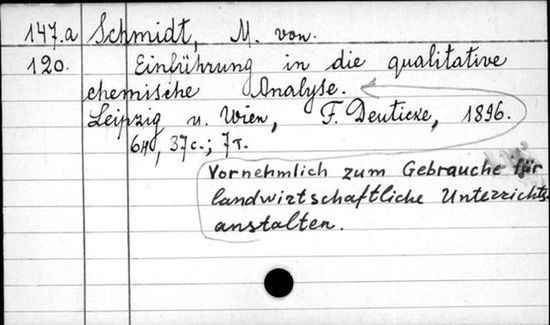 147.a Schmidt, M. von.
120. Einführung in die qualitative
chemische Analyse.
Leipzig u. Wien, F. Deuticke, 1896.
37c.; 7т.
Vornehmlich zum Gebrauche für
landwirtschaftliche Unterrichts-
anstalten.